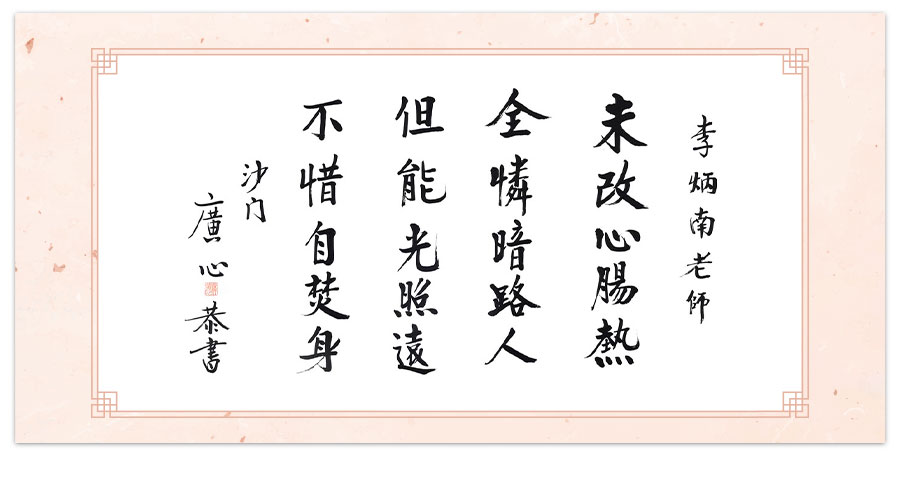 李炳南老師
未改心腸熱
全憐暗路人
但能光照遠
不惜自焚身
沙门
廣心恭書